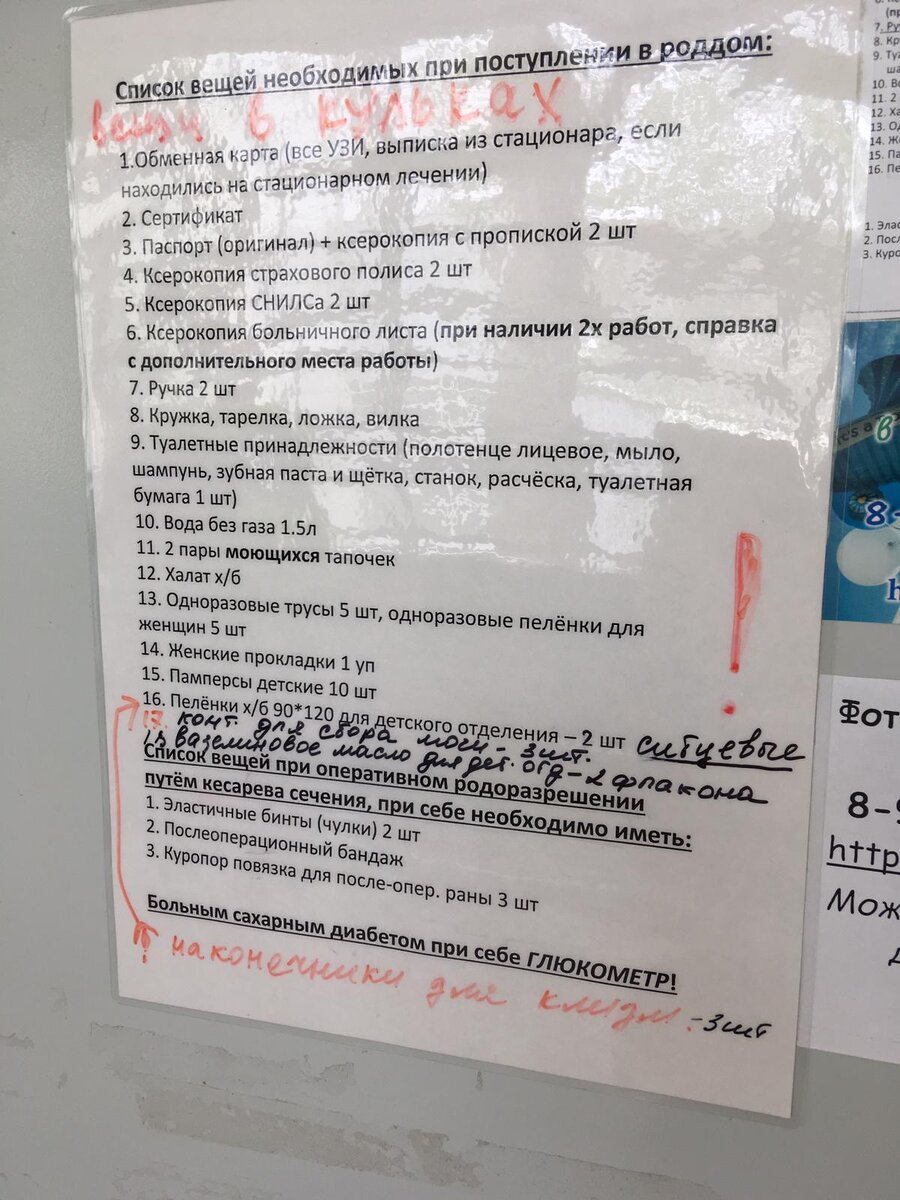 Список вещей необходимых при поступлении в роддом:
вещи в кульках
1.Обменная карта (все УЗИ, выписка из стационара, если
находились на стационарном лечении)
2. Сертификат
3. Паспорт (оригинал) + ксерокопия с пропиской 2 шт
4. Ксерокопия страхового полиса 2 шт
5. Ксерокопия СНИЛСа 2 шт
6. Ксерокопия больничного листа (при наличии 2х работ, справка
с дополнительного места работы)
7. Ручка 2 шт
8. Кружка, тарелка, ложка, вилка
9. Туалетные принадлежности (полотенце лицевое, мыло,
шампунь, зубная паста и щётка, станок, расчёска, туалетная
бумага 1 шт)
10. Вода без газа 1.5л
11. 2 пары моющихся тапочек
12. Халат х/б
13. Одноразовые трусы 5 шт, одноразовые пелёнки для
женщин 5 шт
14. Женские прокладки 1 уп
15. Памперсы детские 10 шт
16. Пелёнки х/б 90*120 для детского отделения – 2 шт ситцевые
!
17. конт. для сбора мочи - 3 шт.
18 вазелиновое масло для дет. отд - 2 флакона
Список вещей при оперативном родоразрешении
путём кесарева сечения, при себе необходимо иметь:
1. Эластичные бинты (чулки) 2 шт
2. Послеоперационный бандаж
3. Куропор повязка для после-опер. раны 3 шт
Больным сахарным диабетом при себе ГЛЮКОМЕТР!
наконечники для клизм. - 3 шт
7. Ру
8. Кр
9. Туа
10. Во
11. 2
12. Ха
13. О
14. Же
15. Па
16. Пе
1. Элас
2. Посл
3. Куро
в
8-
Фот
8-9
http
Мож